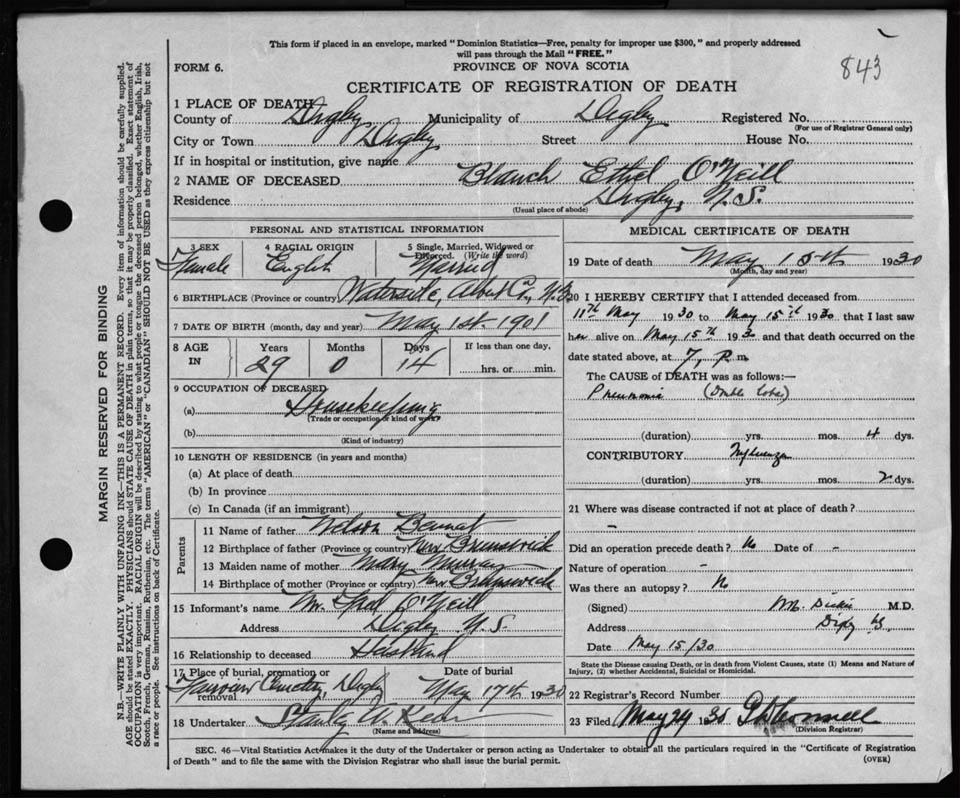 This form if placed in an envelope, marked "Dominion Statistics—Free, penalty for improper use $300," and properly addressed
will pass through the Mail "FREE."
FORM 6.
PROVINCE OF NOVA SCOTIA
843
CERTIFICATE OF REGISTRATION OF DEATH
1 PLACE OF DEATH
County of Digby Municipality of Digby Registered No.
(For use of Registrar General only)
City or Town Digby Street House No.
If in hospital or institution, give name
2 NAME OF DECEASED Blanch Ethel O'Neill
Residence Digby, N.S.
(Usual place of abode)
PERSONAL AND STATISTICAL INFORMATION
3 SEX Female
4 RACIAL ORIGIN English
5 Single, Married, Widowed or
Divorced. (Write the word)
Married
6 BIRTHPLACE (Province or country) Waterside, Albert Co., N.B.
7 DATE OF BIRTH (month, day and year) May 1st. 1901
8 AGE IN Years 29 Months 0 Days 14 If less than one day,
hrs. or min.
9 OCCUPATION OF DECEASED
(a) Housekeeping
(Trade or occupation or kind of work)
(b)
(Kind of industry)
10 LENGTH OF RESIDENCE (in years and months)
(a) At place of death
(b) In province
(c) In Canada (if an immigrant)
Parents
11 Name of father Nelson Bennat
12 Birthplace of father (Province or country) New Brunswick
13 Maiden name of mother Mary Murray
14 Birthplace of mother (Province or country) New Brunswick
15 Informant's name Mr. Fred O'Neill
Address Digby N.S.
16 Relationship to deceased Husband
17 Place of burial, cremation or removal Cemetery, Digby
Date of burial May 17th 1930
18 Undertaker
(Name and address)
MEDICAL CERTIFICATE OF DEATH
19 Date of death May 15th 1930
(Month, day and year)
20 I HEREBY CERTIFY that I attended deceased from
11th May 1930 to May 15th 1930 that I last saw
her alive on May 15th 1930 and that death occurred on the
date stated above, at 7, P. m.
The CAUSE of DEATH was as follows:—
Pneumonia (Double lobar)
(duration) yrs. mos. 4 dys.
CONTRIBUTORY Influenza
(duration) yrs. mos. 2 dys.
21 Where was disease contracted if not at place of death?
—
Did an operation precede death? No Date of -
Nature of operation -
Was there an autopsy? No
(Signed) Dickie M.D.
Address Digby
Date May 15/30
State the Disease causing Death, or in death from Violent Causes, state (1) Means and Nature of
Injury, (2) whether Accidental, Suicidal or Homicidal.
22 Registrar's Record Number
23 Filed May 24 30
(Division Registrar)
SEC. 46—Vital Statistics Act makes it the duty of the Undertaker or person acting as Undertaker to obtain all the particulars required in the "Certificate of Registration
of Death" and to file the same with the Division Registrar who shall issue the burial permit.
(OVER)
MARGIN RESERVED FOR BINDING
N.B.—WRITE PLAINLY WITH UNFADING INK—THIS IS A PERMANENT RECORD. Every item of information should be carefully supplied.
AGE should be stated EXACTLY. PHYSICIANS should STATE CAUSE OF DEATH in plain terms, so that it may be properly classified. Exact statement of
OCCUPATION is very important. RACIAL ORIGIN will be described by stating to what people or tongue the deceased person belonged, whether English, Irish,
Scotch, French, German, Russian, Ruthenian, etc. The terms "AMERICAN" or "CANADIAN" SHOULD NOT BE USED as they express citizenship but not
a race or people. See instructions on back of Certificate.